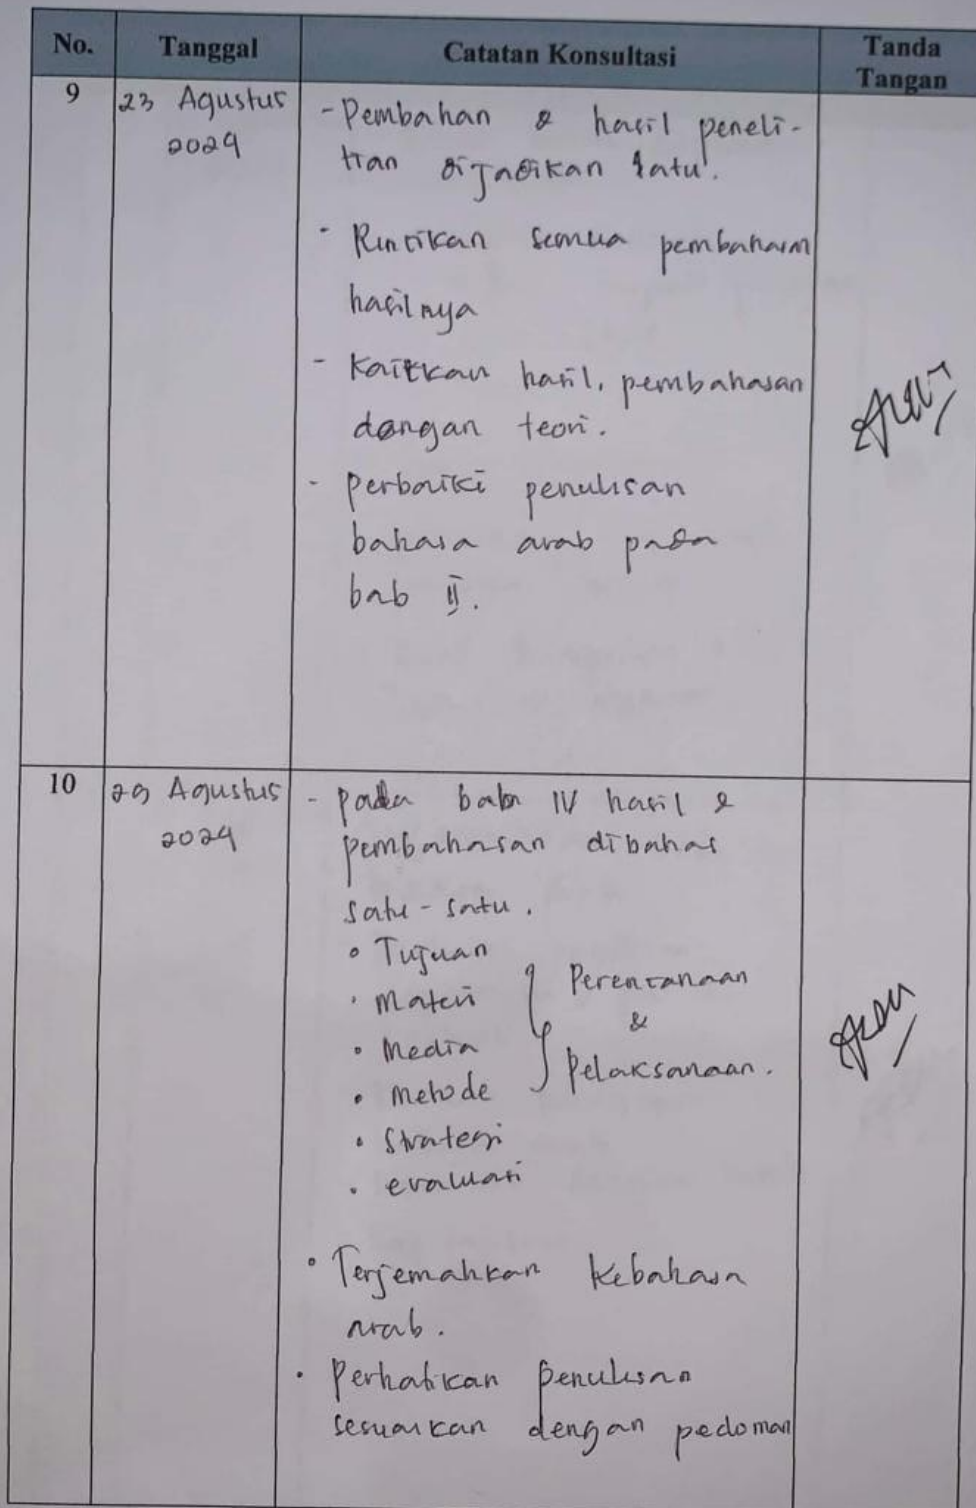 No. Tanggal Catatan Konsultasi Tanda Tangan
9 23 Agustus 2024
- Pembahan & hasil peneli-
tian dijadikan satu.
- Rincikan semua pembahasan
hasilnya
- Kaitkan hasil, pembahasan
dengan teori.
- perbaiki penulisan
bahasa arab pada
bab II.
10 29 Agustus 2024
- pada bab IV hasil &
pembahasan dibahas
satu-satu.
• Tujuan
• Materi
• Media
• Metode
• Strategi
• evaluasi
Perencanaan
&
Pelaksanaan.
• Terjemahkan kebahasa
arab.
• Perhatikan penulisan
sesuaikan dengan pedoman